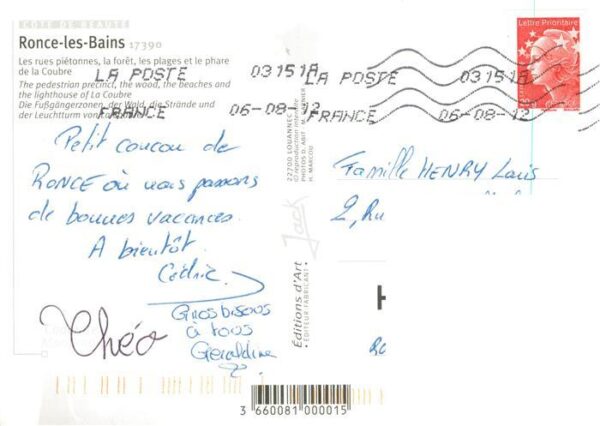 CÔTÉ DE BEAUTÉ
Ronce-les-Bains 17390
Les rues piétonnes, la forêt, les plages et le phare
de la Coubre
The pedestrian precinct, the wood, the beaches and
the lighthouse of La Coubre
Die Fußgängerzonen, der Wald, die Strände und
der Leuchtturm von
LA POSTE 03151A LA POSTE 03151A
FRANCE 06-08-12 FRANCE 06-08-12
Lettre Prioritaire
Petit coucou de
RONCE où nous passons
de bonnes vacances.
A bientôt.
Cédric
Gros bisous
à tous
Géraldine
Théo
22700 LOUANNEC
© reproduction interdite
PHOTOS D. ABIT
H. MARCOU
Jack
Editions d'Art
EDITEUR-FABRICANT
Famille HENRY Louis
2, Ru
3 660081 000015